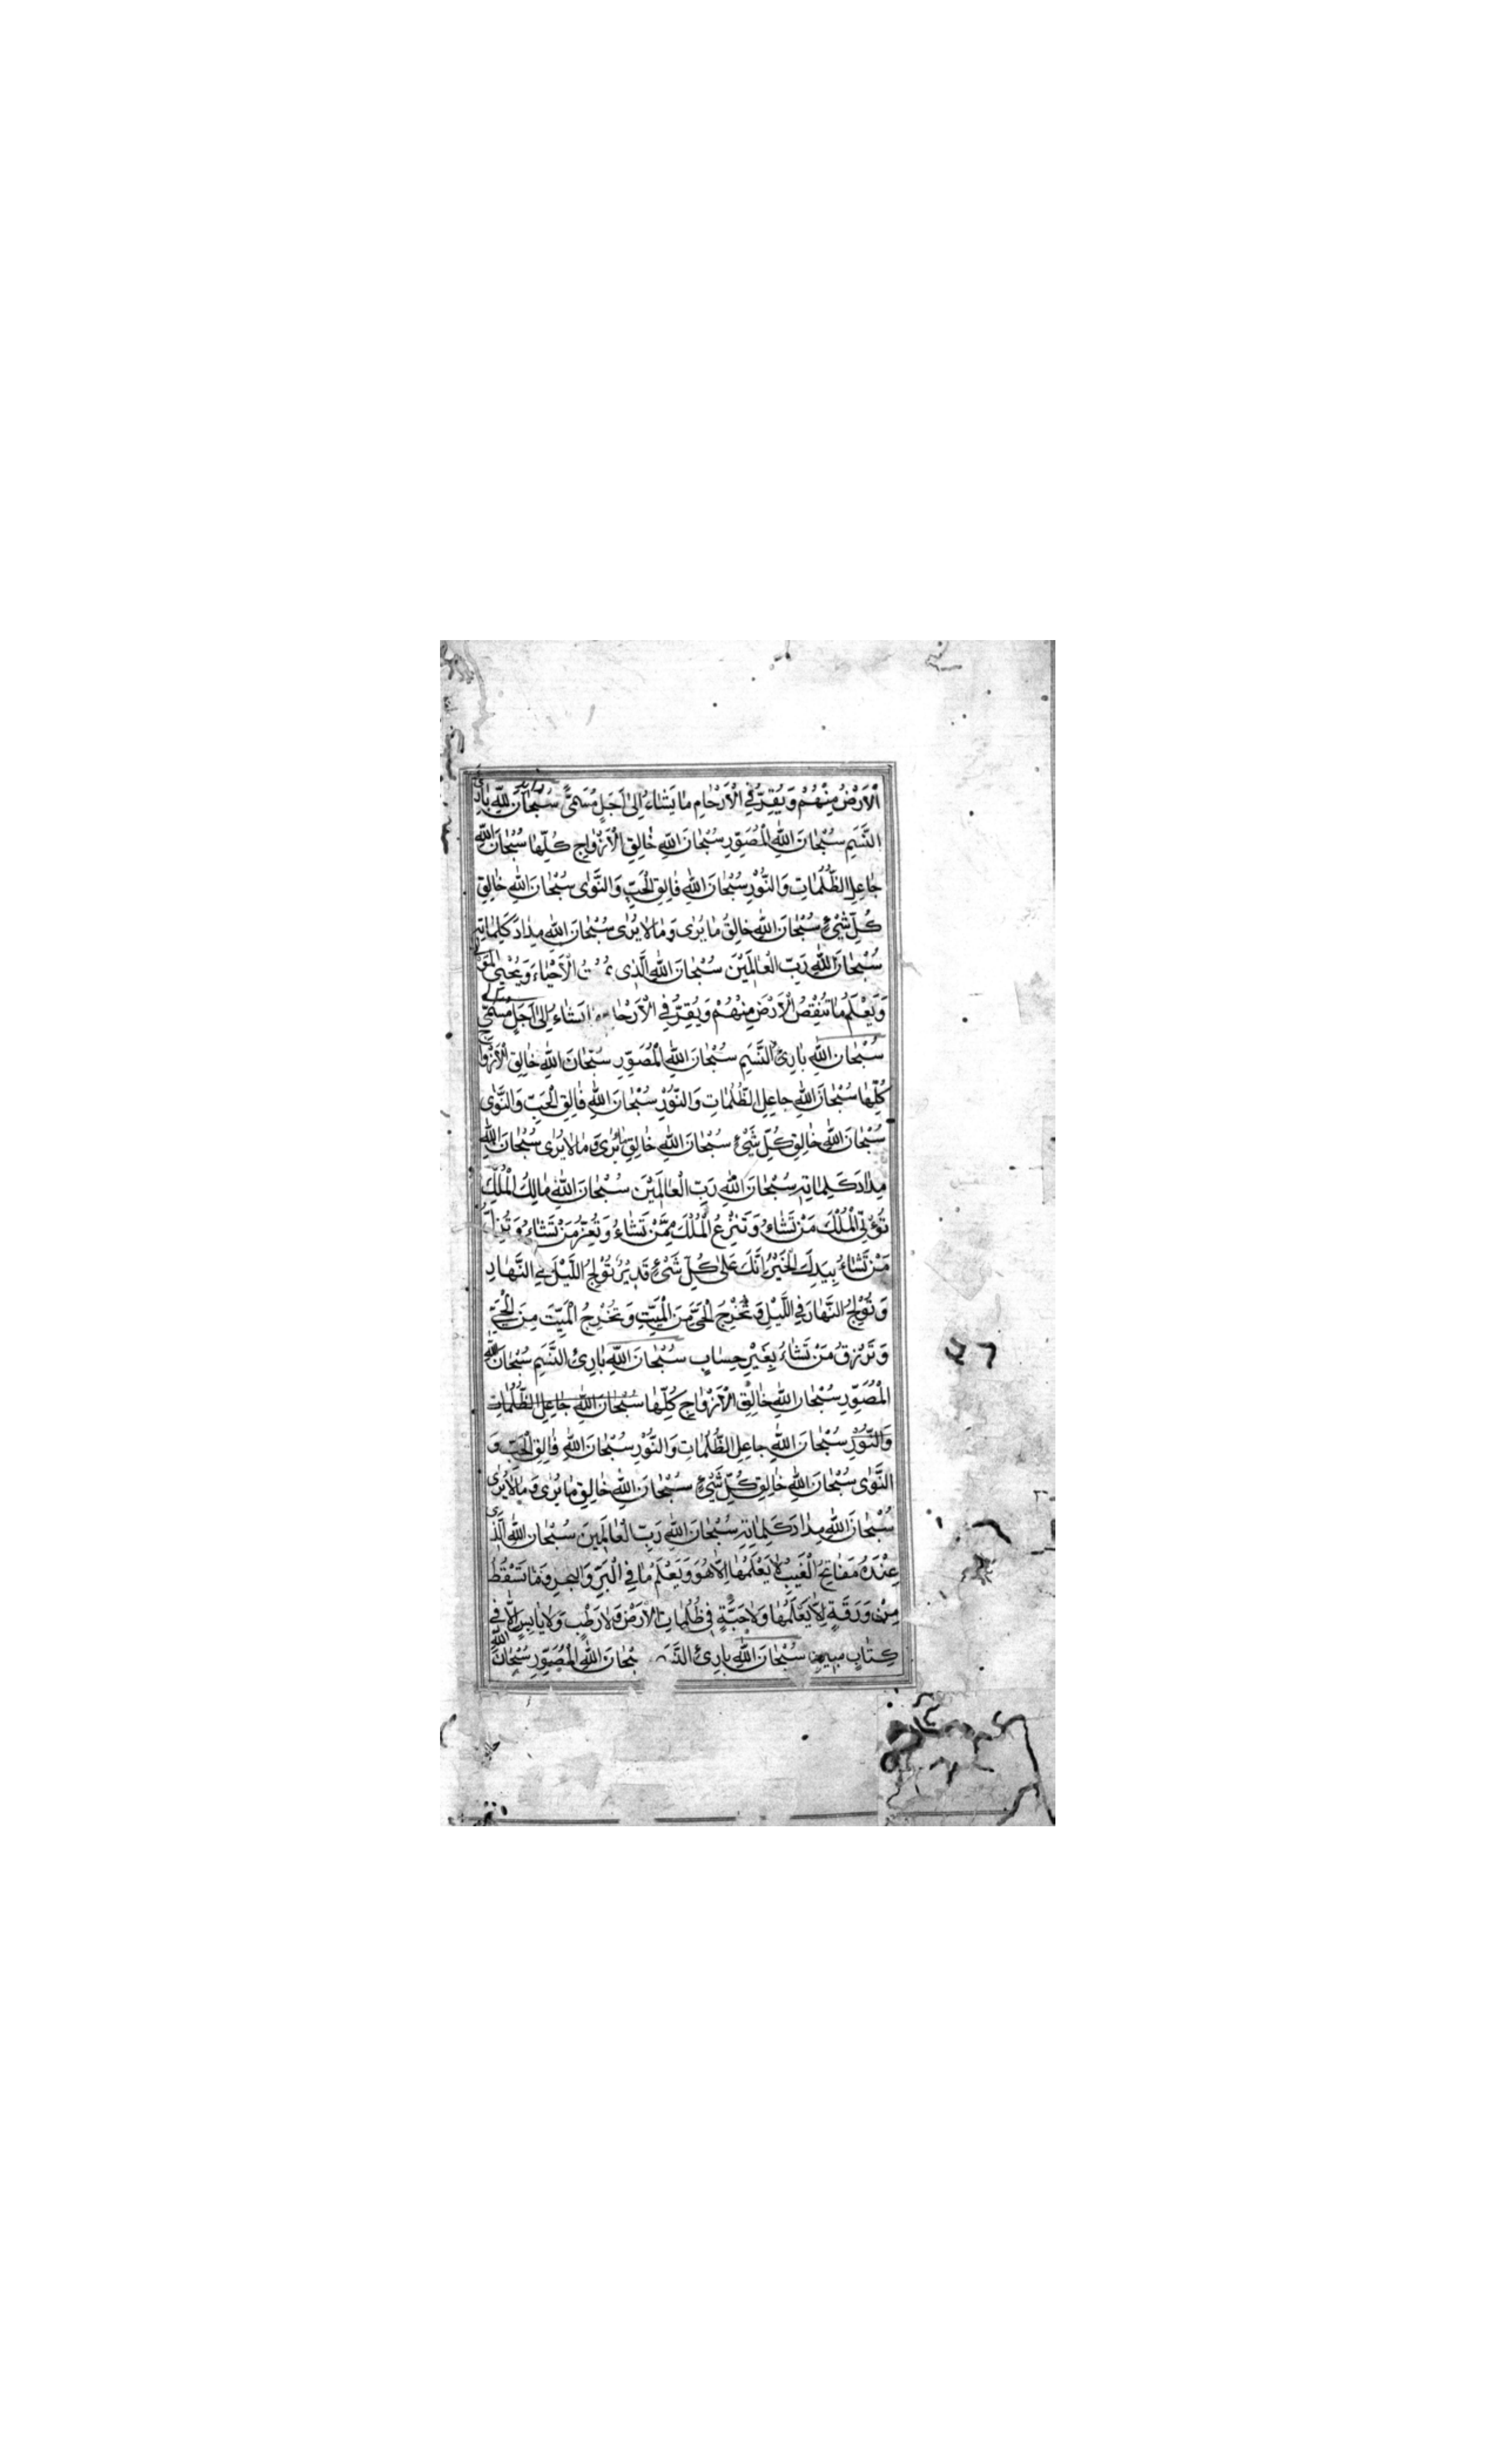 الْاَرْضُ مِنْهُمْ وَيُقِرُّ فِي الْاَرْحَامِ مَا يَشَاءُ اِلىٰ اَجَلٍ مُسَمًّى سُبْحَانَ اللّٰهِ بَارِئِ
النَّسَمِ سُبْحَانَ اللّٰهِ الْمُصَوِّرِ سُبْحَانَ اللّٰهِ خَالِقِ الْاَزْوَاجِ كُلِّهَا سُبْحَانَ اللّٰهِ
جَاعِلِ الظُّلُمَاتِ وَالنُّوْرِ سُبْحَانَ اللّٰهِ فَالِقِ الْحَبِّ وَالنَّوٰى سُبْحَانَ اللّٰهِ خَالِقِ
كُلِّ شَيْءٍ سُبْحَانَ اللّٰهِ خَالِقِ مَا يُرٰى وَمَا لَا يُرٰى سُبْحَانَ اللّٰهِ مِدَادَ كَلِمَاتِهِ
سُبْحَانَ اللّٰهِ رَبِّ الْعَالَمِيْنَ سُبْحَانَ اللّٰهِ الَّذِى الْاَحْيَاءَ وَيُحْيِي الْمَوْتٰى
وَيَعْلَمُ مَا تَنْقُصُ الْاَرْضُ مِنْهُمْ وَيُقِرُّ فِي الْاَرْحَامِ مَا يَشَاءُ اِلىٰ اَجَلٍ مُسَمًّى
سُبْحَانَ اللّٰهِ بَارِئِ النَّسَمِ سُبْحَانَ اللّٰهِ الْمُصَوِّرِ سُبْحَانَ اللّٰهِ خَالِقِ الْاَزْوَاجِ
كُلِّهَا سُبْحَانَ اللّٰهِ جَاعِلِ الظُّلُمَاتِ وَالنُّوْرِ سُبْحَانَ اللّٰهِ فَالِقِ الْحَبِّ وَالنَّوٰى
سُبْحَانَ اللّٰهِ خَالِقِ كُلِّ شَيْءٍ سُبْحَانَ اللّٰهِ خَالِقِ مَا يُرٰى وَمَا لَا يُرٰى سُبْحَانَ اللّٰهِ
مِدَادَ كَلِمَاتِهِ سُبْحَانَ اللّٰهِ رَبِّ الْعَالَمِيْنَ سُبْحَانَ اللّٰهِ مَالِكَ الْمُلْكِ
تُؤْتِي الْمُلْكَ مَنْ تَشَاءُ وَتَنْزِعُ الْمُلْكَ مِمَّنْ تَشَاءُ وَتُعِزُّ مَنْ تَشَاءُ وَتُذِلُّ
مَنْ تَشَاءُ بِيَدِكَ الْخَيْرُ اِنَّكَ عَلىٰ كُلِّ شَيْءٍ قَدِيْرٌ تُوْلِجُ اللَّيْلَ فِي النَّهَارِ
وَتُوْلِجُ النَّهَارَ فِي اللَّيْلِ وَتُخْرِجُ الْحَيَّ مِنَ الْمَيِّتِ وَتُخْرِجُ الْمَيِّتَ مِنَ الْحَيِّ
وَتَرْزُقُ مَنْ تَشَاءُ بِغَيْرِ حِسَابٍ سُبْحَانَ اللّٰهِ بَارِئِ النَّسَمِ سُبْحَانَ اللّٰهِ
الْمُصَوِّرِ سُبْحَانَ اللّٰهِ خَالِقِ الْاَزْوَاجِ كُلِّهَا سُبْحَانَ اللّٰهِ جَاعِلِ الظُّلُمَاتِ
وَالنُّوْرِ سُبْحَانَ اللّٰهِ جَاعِلِ الظُّلُمَاتِ وَالنُّوْرِ سُبْحَانَ اللّٰهِ فَالِقِ الْحَبِّ وَ
النَّوٰى سُبْحَانَ اللّٰهِ خَالِقِ كُلِّ شَيْءٍ سُبْحَانَ اللّٰهِ خَالِقِ مَا يُرٰى وَمَا لَا يُرٰى
سُبْحَانَ اللّٰهِ مِدَادَ كَلِمَاتِهِ سُبْحَانَ اللّٰهِ رَبِّ الْعَالَمِيْنَ سُبْحَانَ اللّٰهِ الَّذِى
عِنْدَهُ مَفَاتِحُ الْغَيْبِ لَا يَعْلَمُهَا اِلَّا هُوَ وَيَعْلَمُ مَا فِي الْبَرِّ وَالبَحْرِ وَمَا تَسْقُطُ
مِنْ وَرَقَةٍ اِلَّا يَعْلَمُهَا وَلَا حَبَّةٍ فِي ظُلُمَاتِ الْاَرْضِ وَلَا رَطْبٍ وَلَا يَابِسٍ اِلَّا فِي
كِتَابٍ مُبِيْنٍ سُبْحَانَ اللّٰهِ بَارِئِ سُبْحَانَ اللّٰهِ الْمُصَوِّرِ سُبْحَانَ اللّٰهِ